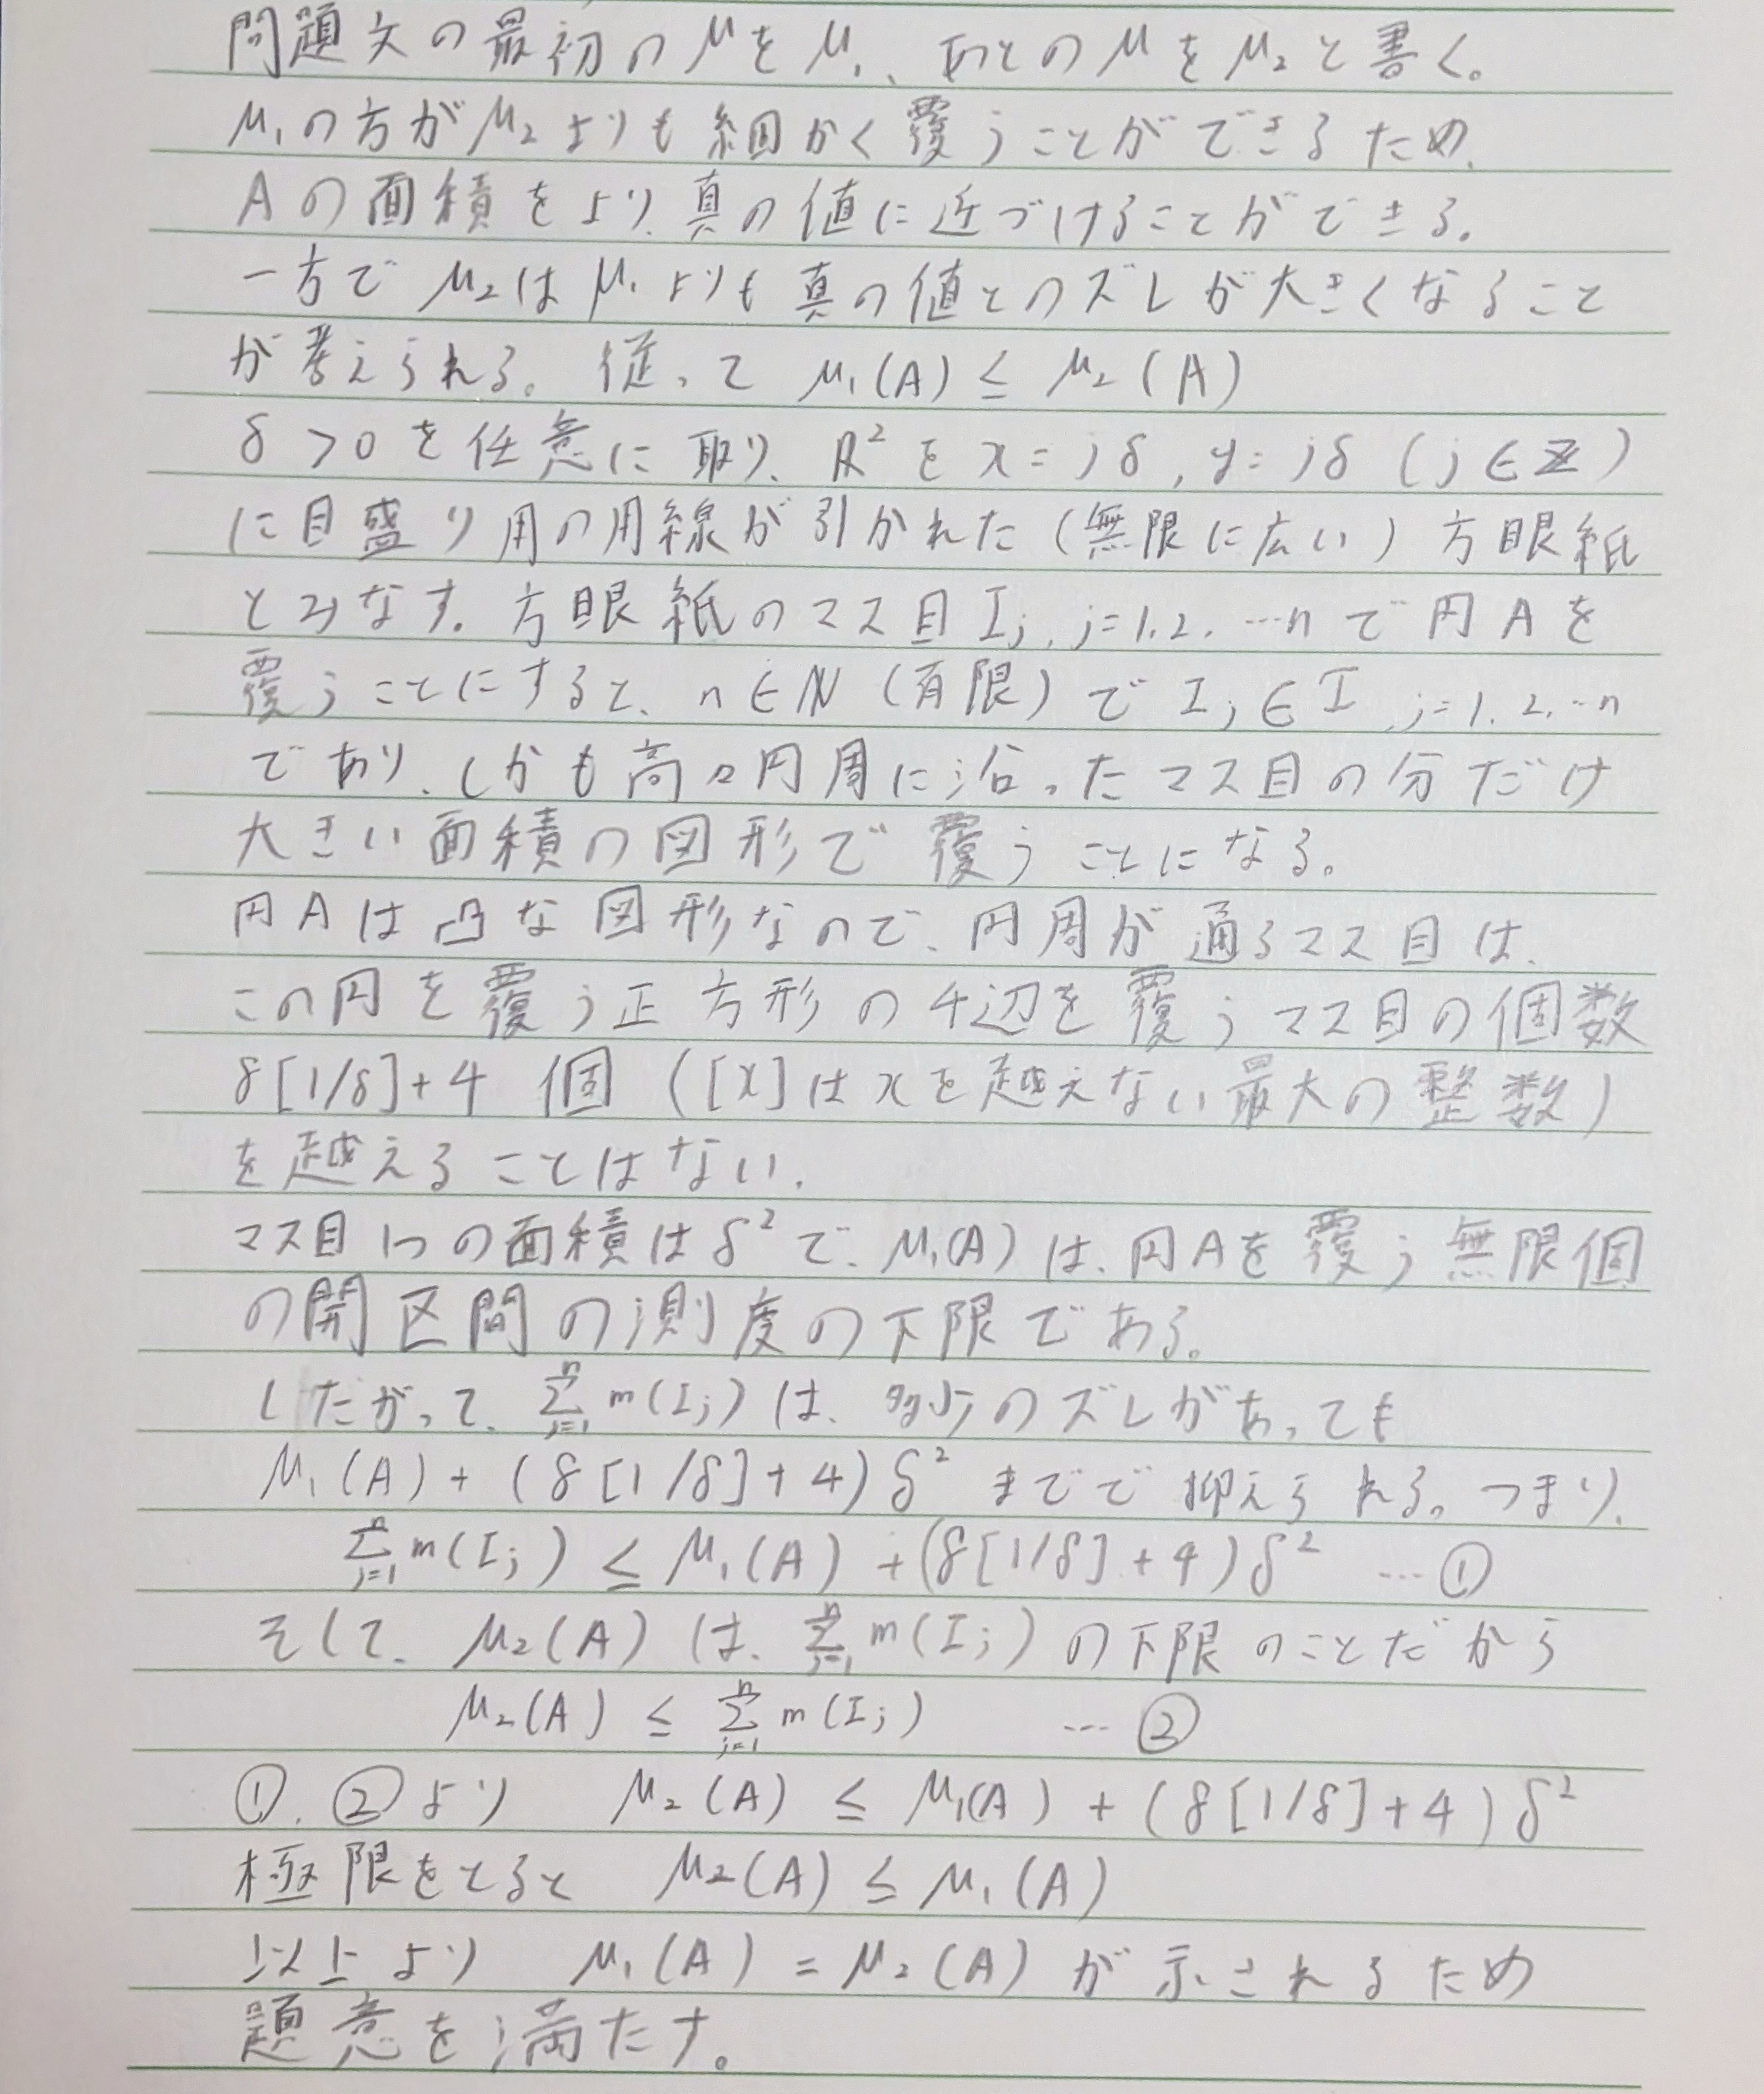 問題文の最初のμをμ₁、あとのμをμ₂と書く。
μ₁の方がμ₂よりも細かく覆うことができるため、
Aの面積をより真の値に近づけることができる。
一方でμ₂はμ₁よりも真の値とのズレが大きくなること
が考えられる。従って μ₁(A) ≤ μ₂(A)
δ>0を任意に取り、R²をx=jδ, y=jδ (j∈Z)
に目盛り用の用線が引かれた(無限に広い)方眼紙
とみなす。方眼紙のマス目Ij, j=1.2.…nで円Aを
覆うことにすると、n∈N (有限)でIj∈I, j=1.2.…n
であり、しかも高々円周に沿ったマス目の分だけ
大きい面積の図形で覆うことになる。
円Aは凸な図形なので、円周が通るマス目は、
この円を覆う正方形の4辺を覆うマス目の個数
8[1/δ]+4 個 ([x]はxを越えない最大の整数)
を越えることはない.
マス目1つの面積はδ²で、μ₁(A)は、円Aを覆う無限個
の開区間の測度の下限である。
したがって、Σ[j=1→n] m(Ij)は、多少のズレがあっても
μ₁(A)+(8[1/δ]+4)δ² までで抑えられる。つまり、
Σ[j=1→n] m(Ij) ≤ μ₁(A)+(8[1/δ]+4)δ² …①
そして、μ₂(A)は、Σ[j=1→n] m(Ij)の下限のことだから
μ₂(A) ≤ Σ[j=1→n] m(Ij) …②
①.②より μ₂(A) ≤ μ₁(A)+(8[1/δ]+4)δ²
極限をとると μ₂(A) ≤ μ₁(A)
以上より μ₁(A)=μ₂(A)が示されるため
題意を満たす。